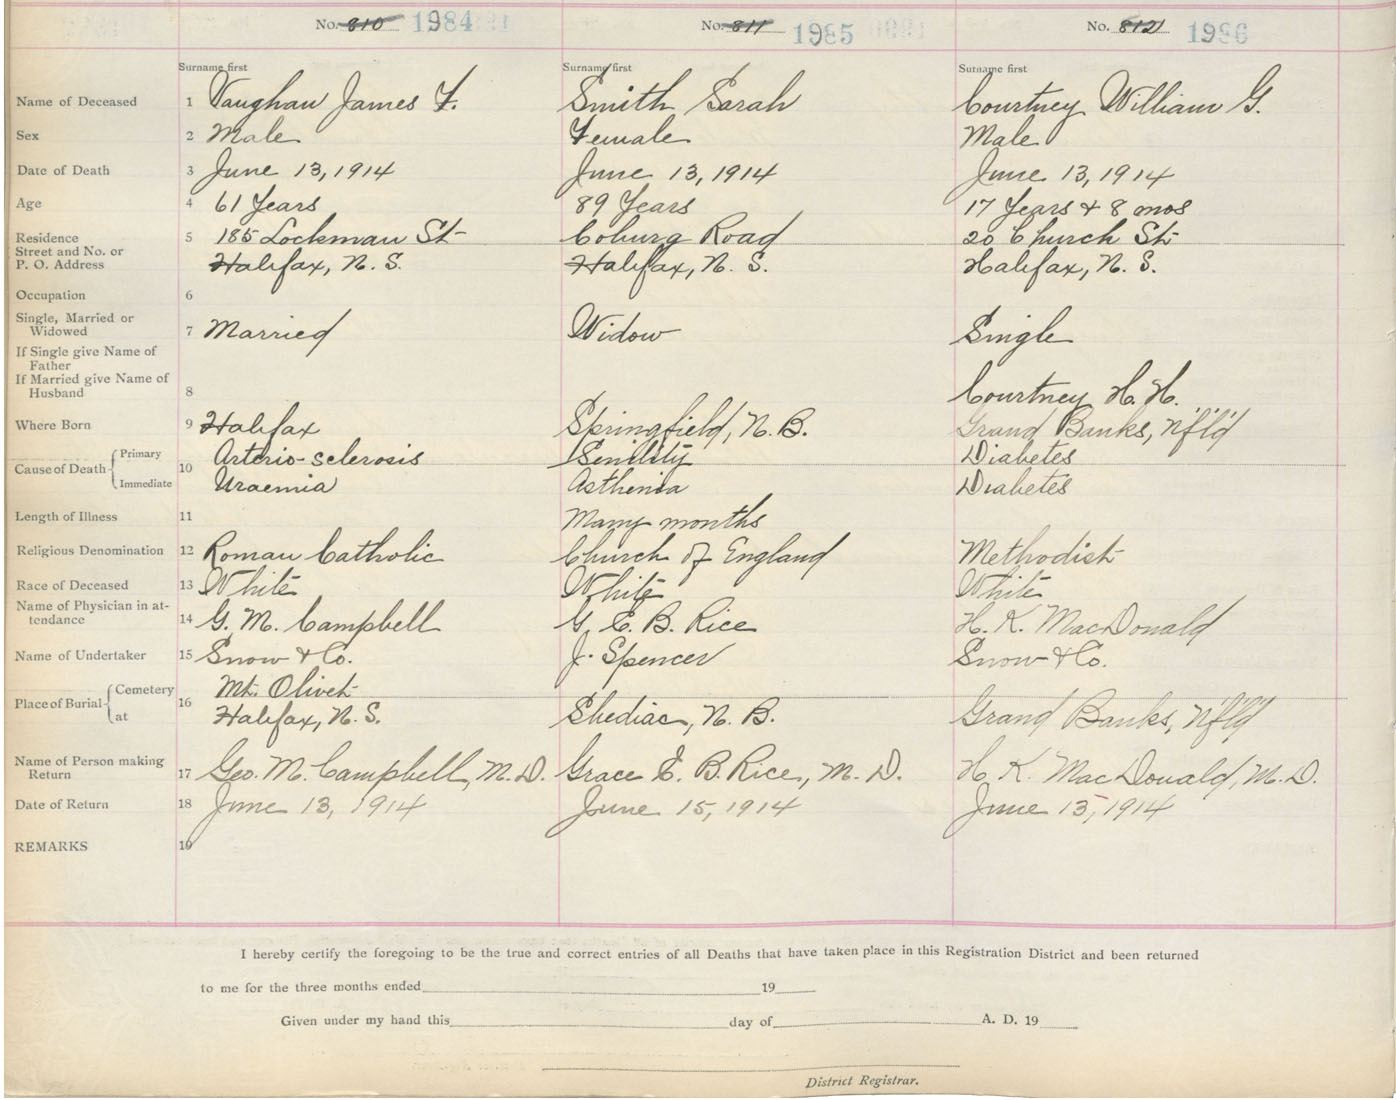 No. 810 1984 No. 811 1985 No. 812 1986
Surname first Surname first Surname first
Name of Deceased 1 Vaughan James F. Smith Sarah Courtney William G.
Sex 2 Male Female Male
Date of Death 3 June 13, 1914 June 13, 1914 June 13, 1914
Age 4 61 Years 89 Years 17 Years & 8 mos
Residence 5 185 Lockman St Coburg Road 20 Church St
Street and No. or
P. O. Address Halifax, N. S. Halifax, N. S. Halifax, N. S.
Occupation 6
Single, Married or
Widowed 7 Married Widow Single
If Single give Name of
Father
If Married give Name of
Husband 8 Courtney H. H.
Where Born 9 Halifax Springfield, N. B. Grand Banks, N'f'l'd
Cause of Death Primary 10 Arterio-sclerosis Senility Diabetes
Immediate Uraemia Asthenia Diabetes
Length of Illness 11 Many months
Religious Denomination 12 Roman Catholic Church of England Methodist
Race of Deceased 13 White White White
Name of Physician in at-
tendance 14 G. M. Campbell G. E. B. Rice H. K. MacDonald
Name of Undertaker 15 Snow & Co. J. Spencer Snow & Co.
Place of Burial Cemetery 16 Mt. Olivet
at Halifax, N. S. Shediac, N. B. Grand Banks, N'f'l'd
Name of Person making
Return 17 Geo. M. Campbell, M. D. Grace E. B. Rice, M. D. H. K. MacDonald, M. D.
Date of Return 18 June 13, 1914 June 15, 1914 June 15, 1914
REMARKS 19
I hereby certify the foregoing to be the true and correct entries of all Deaths that have taken place in this Registration District and been returned
to me for the three months ended 19
Given under my hand this day of A. D. 19
District Registrar.